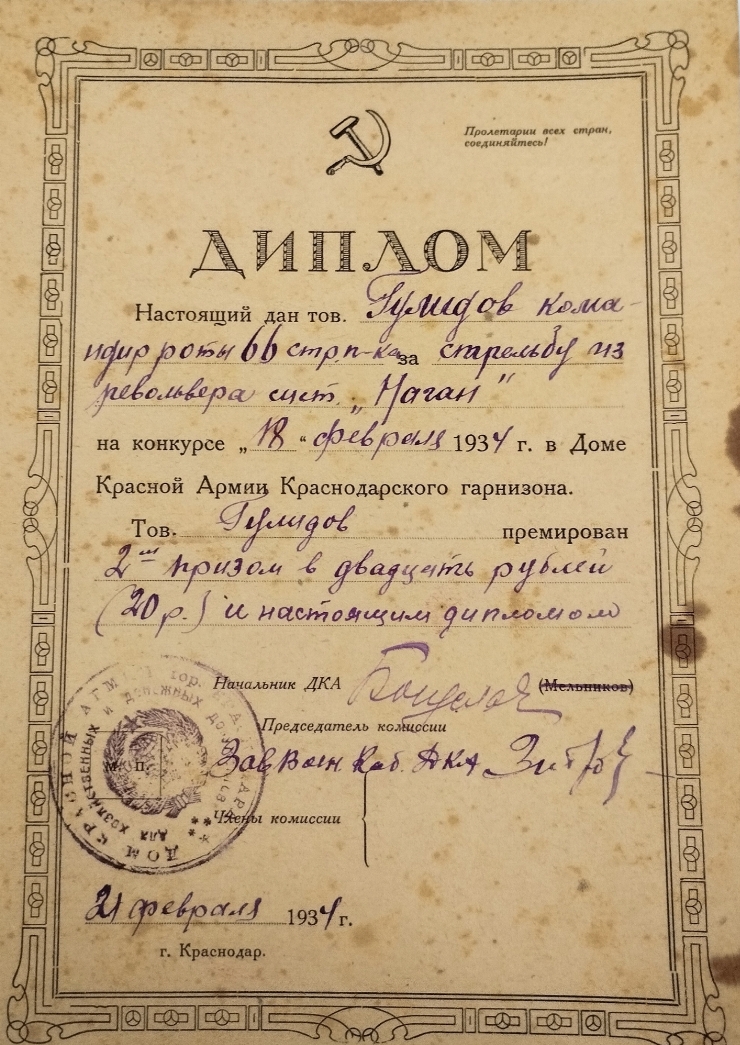 Пролетарии всех стран,
соединяйтесь!
ДИПЛОМ
Настоящий дан тов. Гулидов кома-
ндир роты 66 стр. п-ка за стрельбу из
револьвера сист. „Наган"
на конкурсе „18" февраля 1934 г. в Доме
Красной Армии Краснодарского гарнизона.
Тов. Гулидов премирован
2ым призом в двадцать рублей
(20 р.) и настоящим дипломом
Начальник ДКА (Мельников)
Председатель комиссии
Зав Воен. Каб. ДКА
М. П.
Члены комиссии
ДОМ КРАСНОЙ АРМИИ гор.
для хозяйственных и денежных
21 февраля 1934 г.
г. Краснодар.